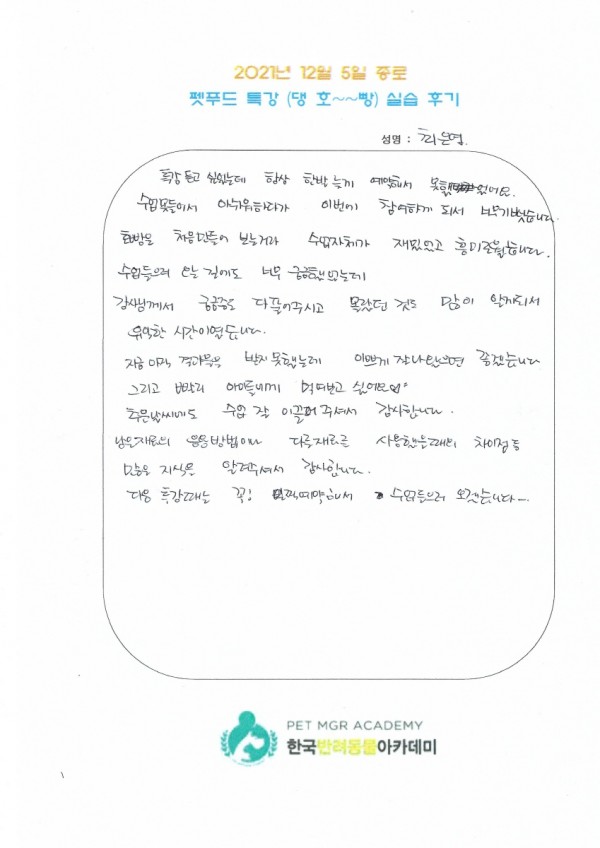 2021년 12월 5일 종로
펫푸드 특강 (댕 호~~빵) 실습 후기
성명 : 최은영.
특강 듣고 싶었는데 항상 한발 늦게 예약해서 못했었어요.
수업 못들어서 아쉬워하다가 이번에 참여하게 되서 너무기뻤습니다.
호빵은 처음만들어 보는거라 수업자체가 재밌었고 흥미로웠습니다.
수업들으러 오는 길에도 너무 궁금했었는데
강사님께서 궁금증도 다 풀어주시고 몰랐던 것도 많이 알게되서
유익한 시간이였습니다.
지금 아직 결과물은 받지 못했는데 이쁘게 잘나왔으면 좋겠습니다
그리고 빨리 아이들에게 먹여보고 싶어요
추운날씨에도 수업 잘 이끌어 주셔서 감사합니다.
남은재료의 응용방법이나 다른재료를 사용했을때의 차이점 등
많은 지식을 알려주셔서 감사합니다.
다음 특강때는 꼭! 빨리예약해서 수업들으러 오겠습니다~.
PET MGR ACADEMY
한국반려동물아카데미